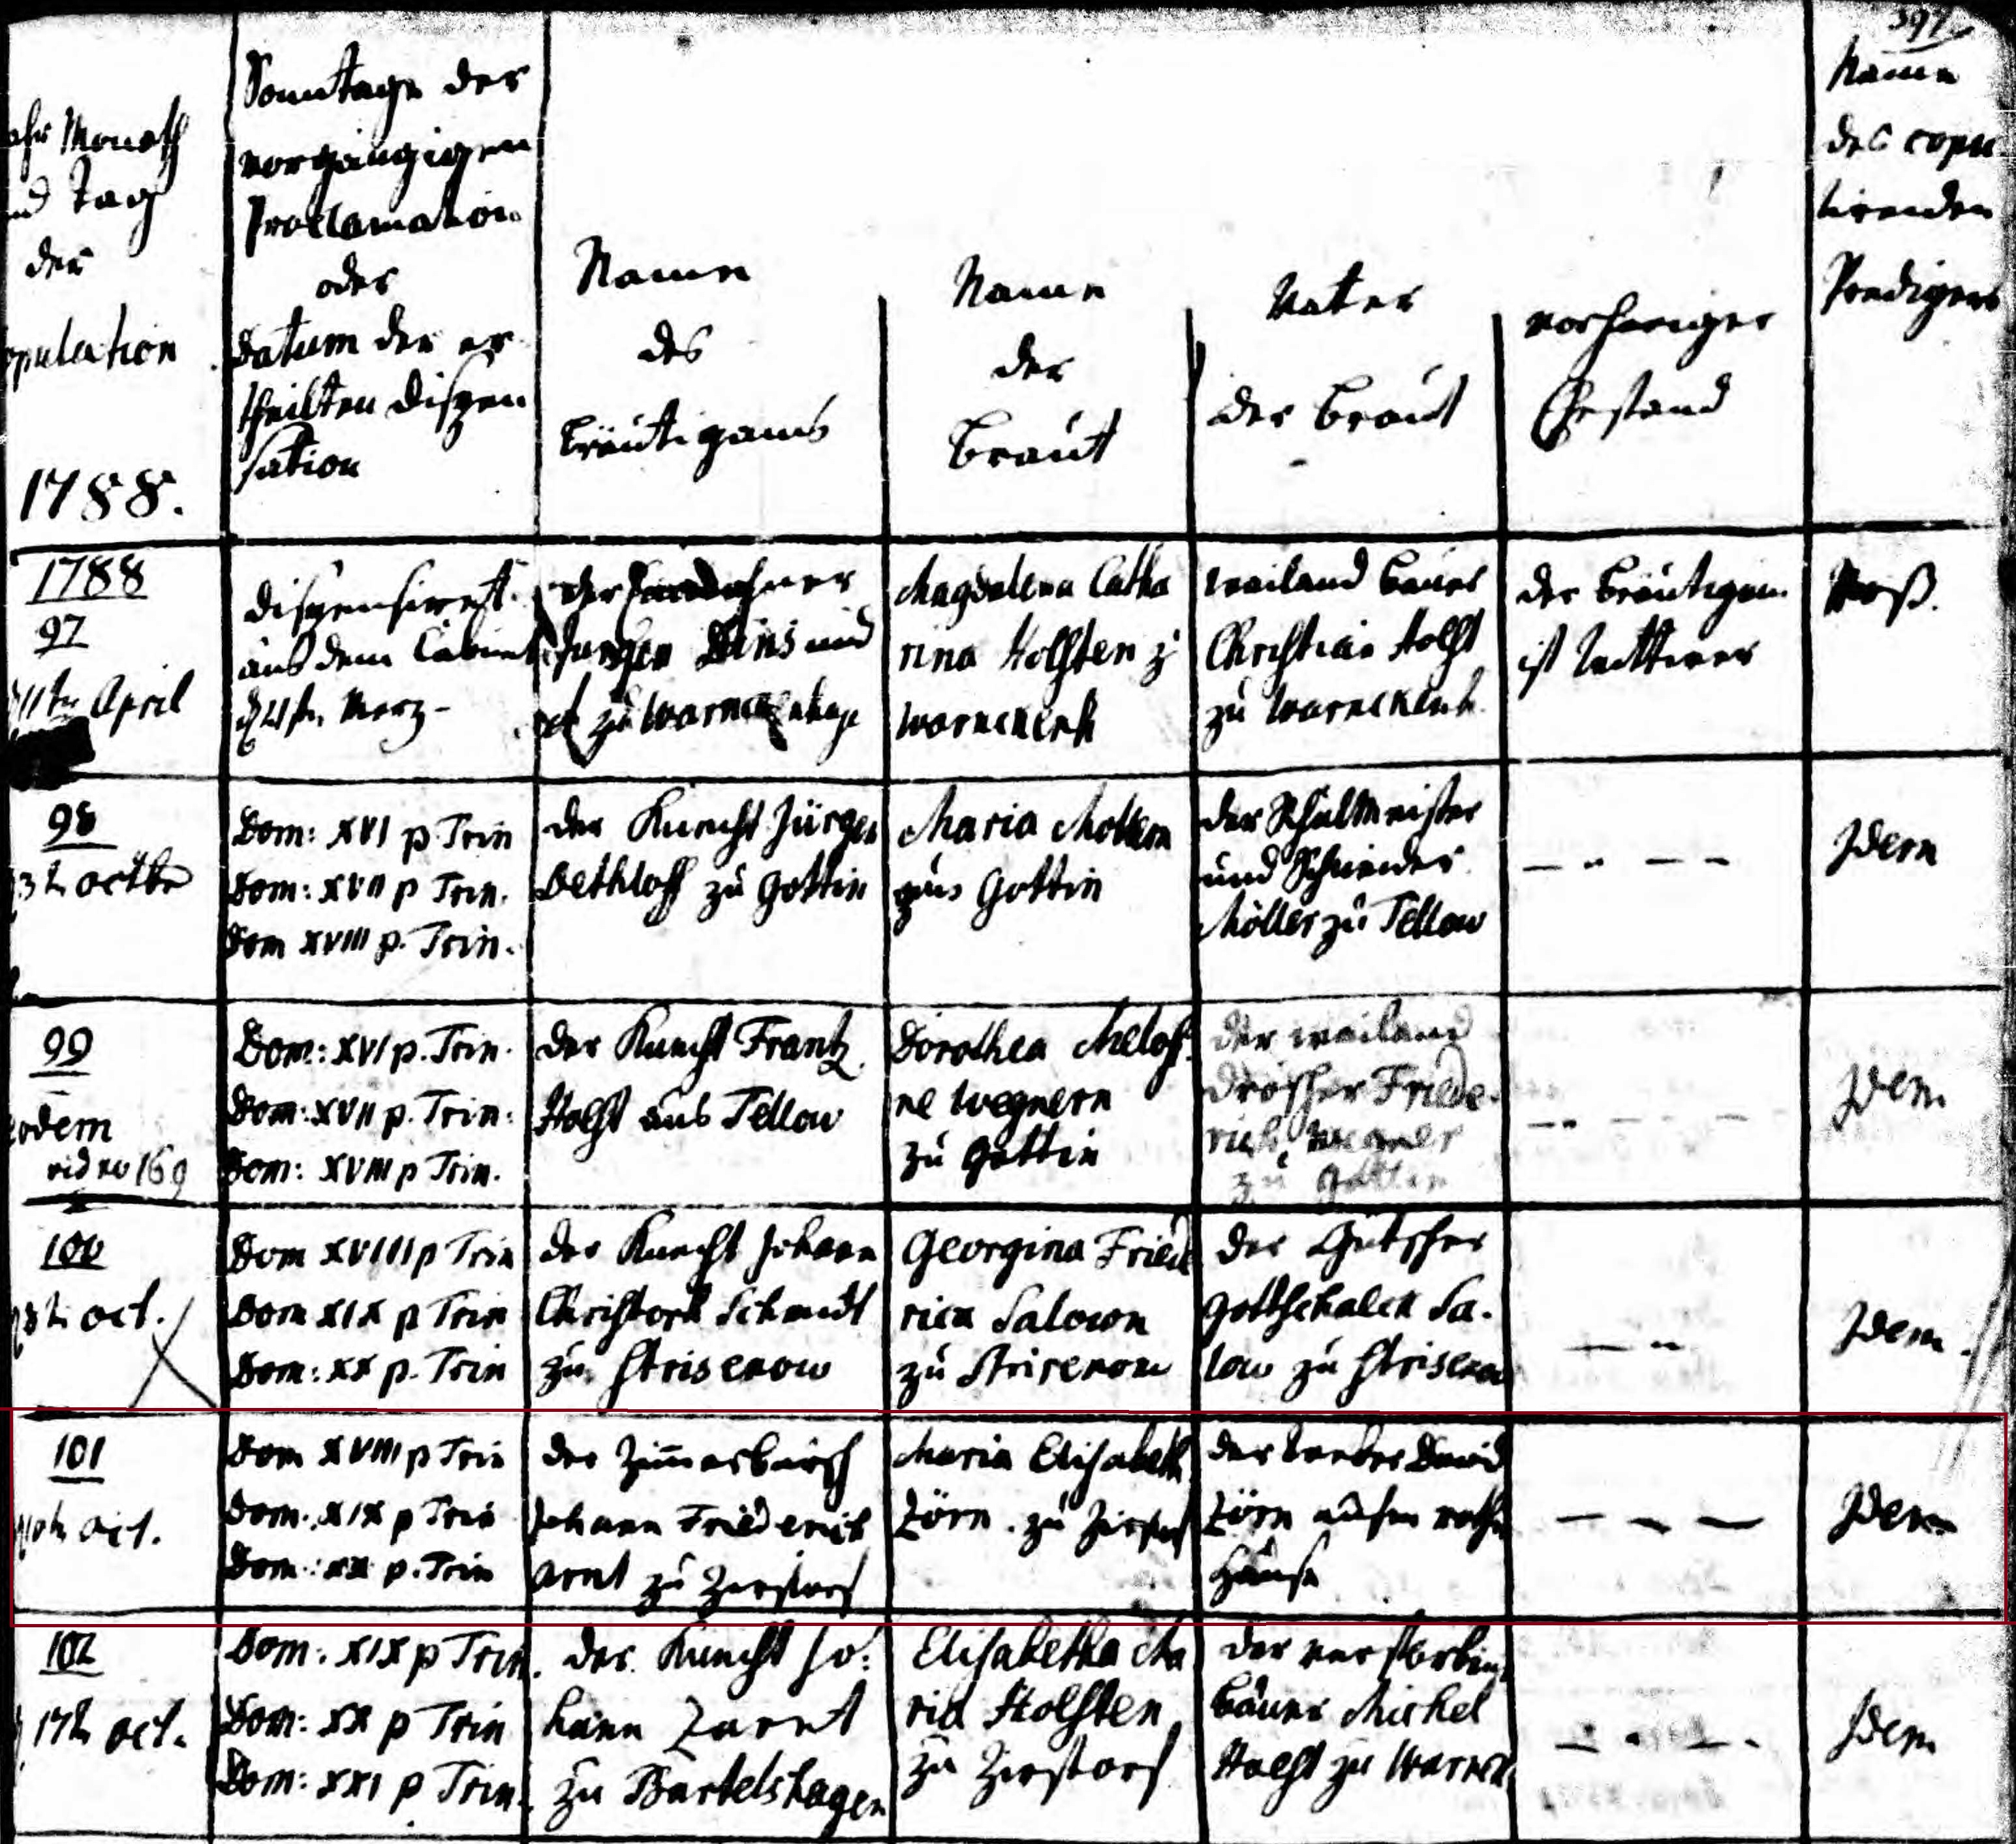 397
Jahr Monath
und Tag
der
Copulation
1788.
Sonntage der
vorgängigen
Proclamation
oder
Datum der er-
theilten Dispen
sation
Name
des
Bräutigams
Name
der
Braut
Vater
der Braut
vorheriger
Ehestand
Name
des copu
lirenden
Predigers
1788
97
11ten April
dispensiret
aus dem Cabinet
Merz
der
Jürgen
zu
Magdalena Catha
rina Holsten z
Warnckenh
weiland Bauer
Christian Holst
zu Warnckenh.
der Bräutigam
ist Wittwer
98
octbr
Dom: XVI p Trin
Dom: XVII p Trin.
Dom XVIII p. Trin.
der Knecht Jürgen
Dethloff zu Gottin
Maria
aus Gottin
der Schulmeister
und Schneider
Möller zu Tellow
Idem
99
eodem
vid no 169
Dom: XVI p. Trin.
Dom: XVII p. Trin:
Dom: XVIII p Trin.
der Knecht Frantz
Holst aus Tellow
Dorothea
ne Wegnern
zu Gottin
der weiland
Fride-
rich Wegner
zu Gottin
Idem
100
oct.
Dom XVIII p Trin
Dom XIX p Trin
Dom: XX p. Trin
der Knecht Johann
Christoph Schmidt
zu Strisenow
Georgina Fried
rica Salown
zu Strisenow
der
Gottschalck Sa-
low zu Strisenow
Idem.
101
oct.
Dom XVIII p Trin
Dom: XIX p Trin
Dom: XX p. Trin
der Zimmerbursch
Johann Friederich
Arnt zu Zierstorf
Maria Elisabeth
Zörn zu Zierstorf
der Weber David
Zörn aufm rothen
Hause
Idem
102
17t oct.
Dom: XIX p Trin.
Dom: XX p Trin
Dom: XXI p Trin.
der Knecht Jo:
hann Zarnt
zu Bartelshagen
Elisabetha Ma
ria Holsten
zu Zierstorf
der verstorbene
Bauer Michel
Holst zu Warnck
Idem